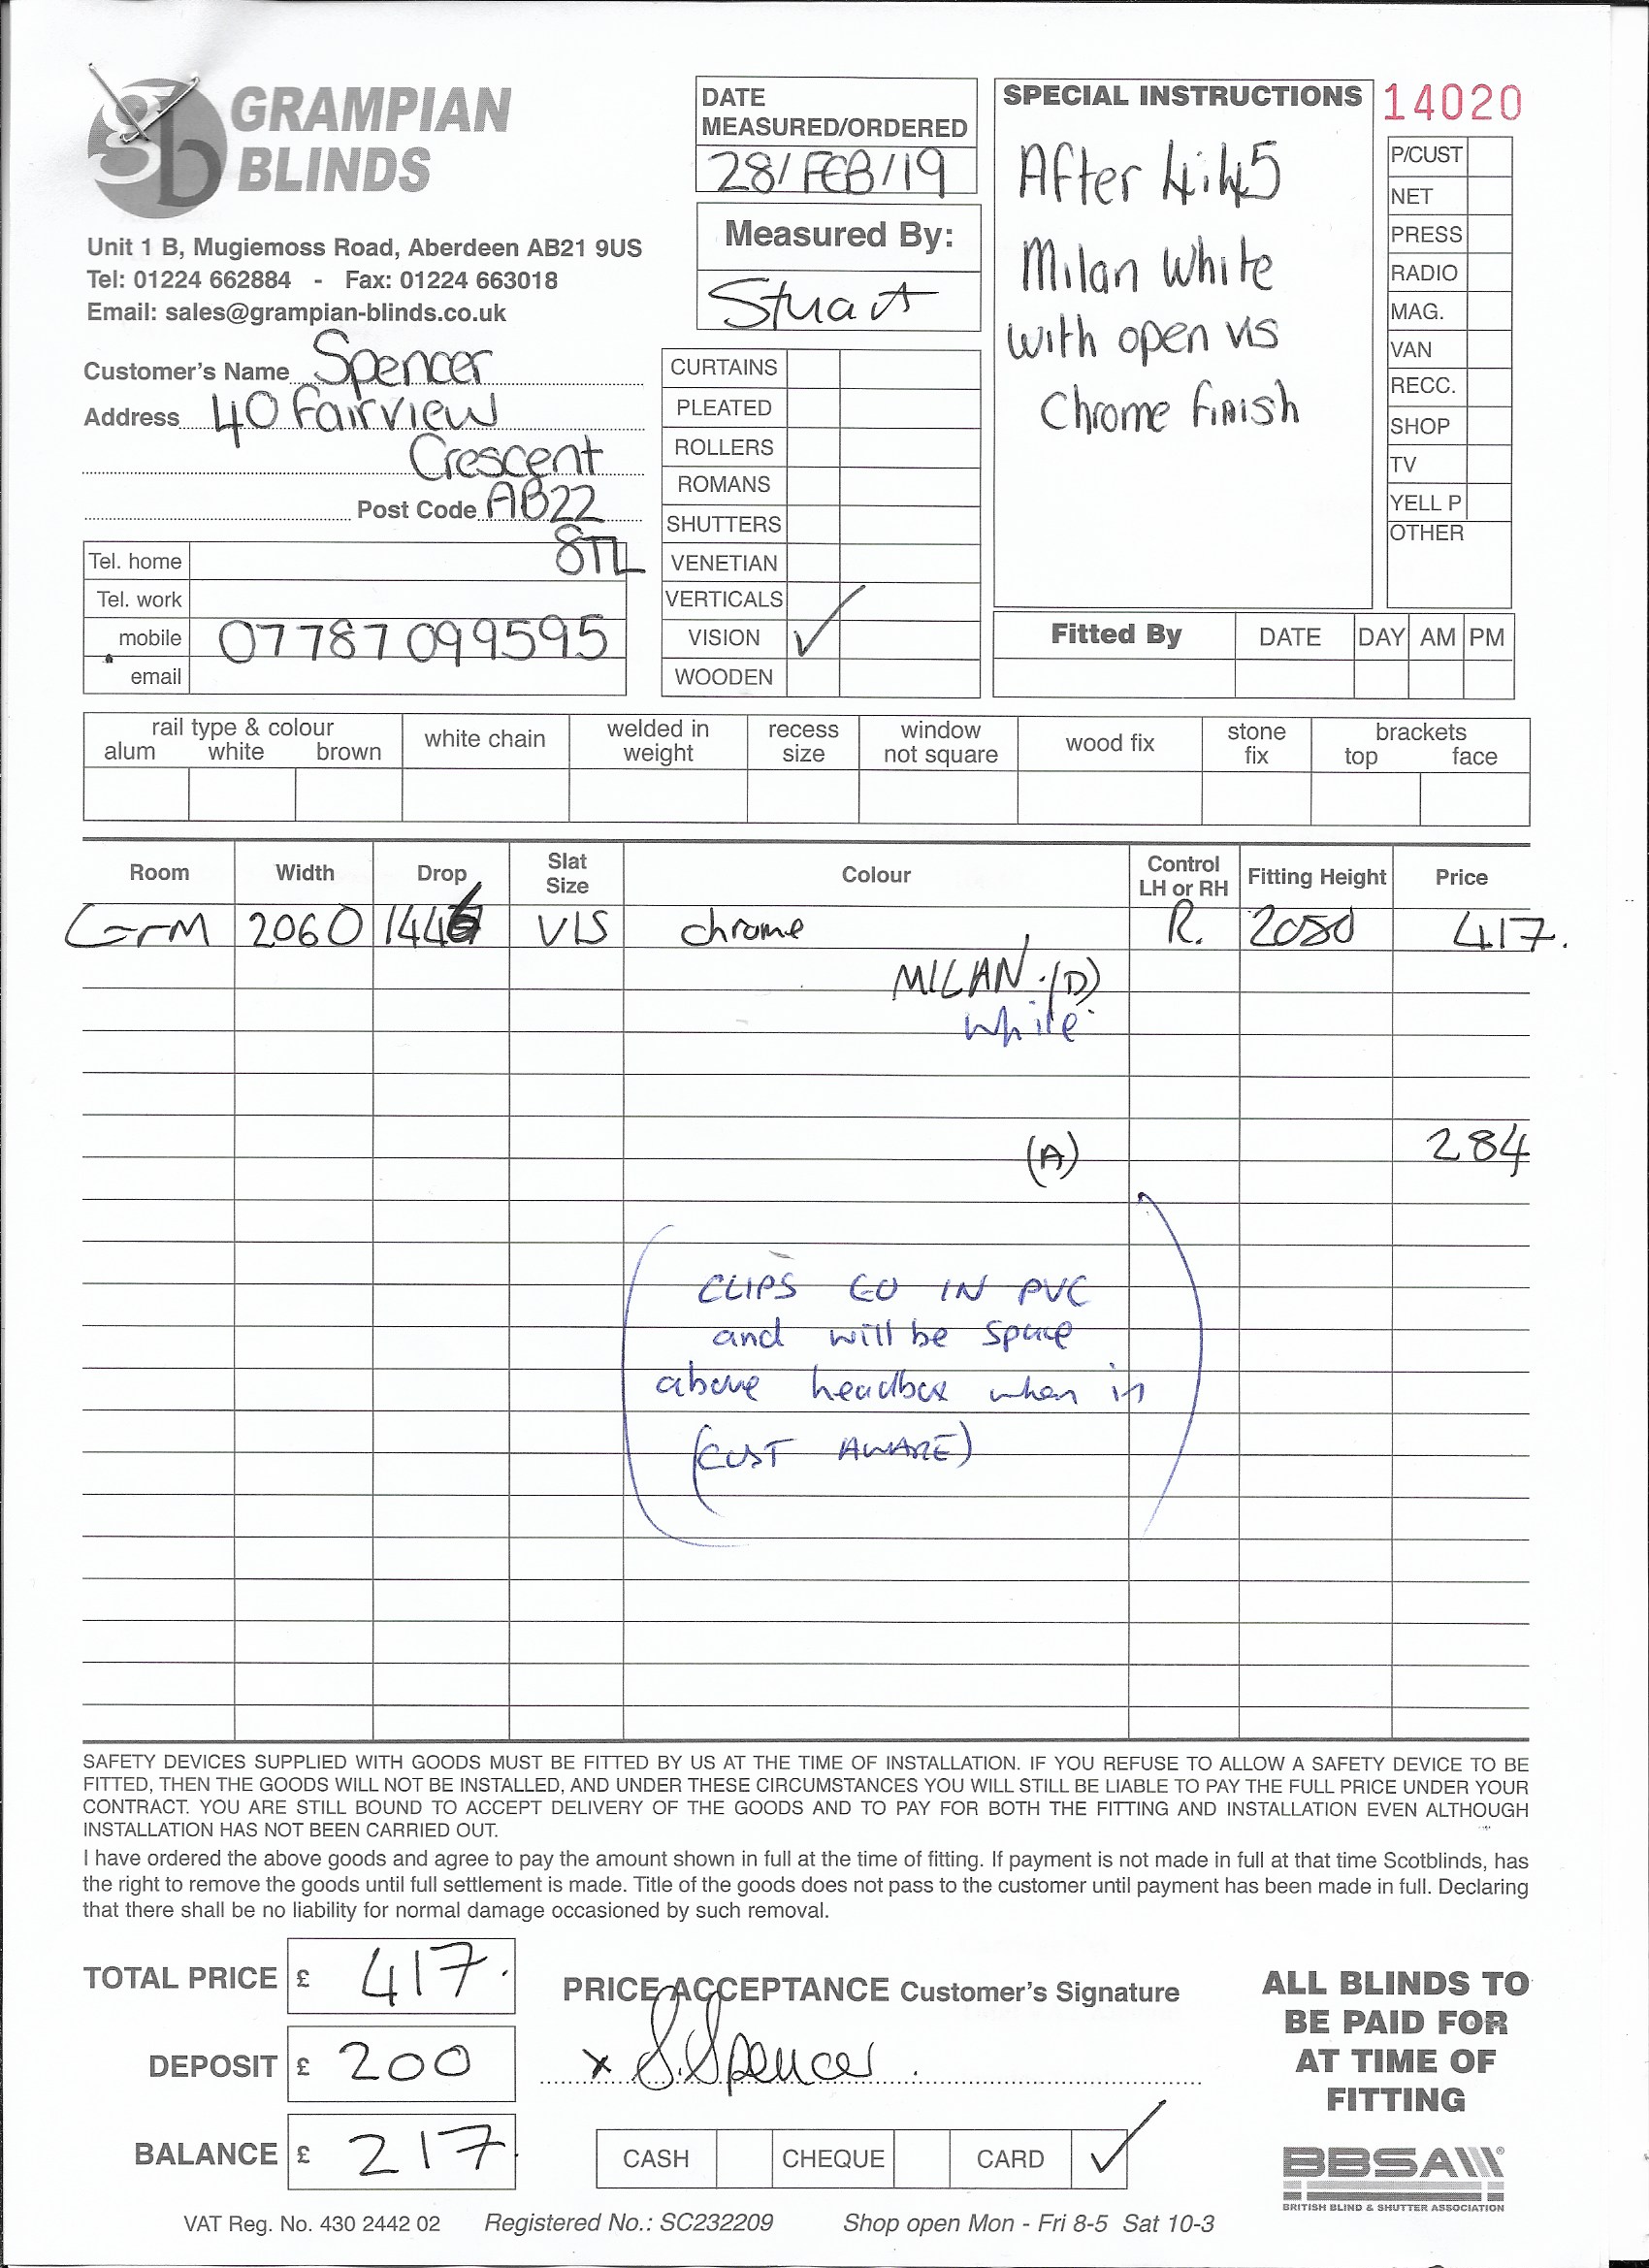 GRAMPIAN
BLINDS
Unit 1 B, Mugiemoss Road, Aberdeen AB21 9US
Tel: 01224 662884 - Fax: 01224 663018
Email: sales@grampian-blinds.co.uk
Customer's Name Spencer
Address 40 Fairview
Crescent
Post Code AB22
8TL
Tel. home
Tel. work
mobile 07787 099595
email
DATE
MEASURED/ORDERED
28/FEB/19
Measured By:
Stuart
CURTAINS
PLEATED
ROLLERS
ROMANS
SHUTTERS
VENETIAN
VERTICALS
VISION ✓
WOODEN
SPECIAL INSTRUCTIONS
After 4:45
Milan White
with open vis
Chrome Finish
14020
P/CUST
NET
PRESS
RADIO
MAG.
VAN
RECC.
SHOP
TV
YELL P
OTHER
Fitted By DATE DAY AM PM
rail type & colour
alum white brown
white chain
welded in
weight
recess
size
window
not square
wood fix
stone
fix
brackets
top face
Room Width Drop Slat Size Colour Control LH or RH Fitting Height Price
GrM 2060 1446 VIS chrome R. 2050 417.
MILAN (D)
white
(A) 284
CLIPS GO IN PVC
and will be space
above headbox when in
(CUST AWARE)
SAFETY DEVICES SUPPLIED WITH GOODS MUST BE FITTED BY US AT THE TIME OF INSTALLATION. IF YOU REFUSE TO ALLOW A SAFETY DEVICE TO BE
FITTED, THEN THE GOODS WILL NOT BE INSTALLED, AND UNDER THESE CIRCUMSTANCES YOU WILL STILL BE LIABLE TO PAY THE FULL PRICE UNDER YOUR
CONTRACT. YOU ARE STILL BOUND TO ACCEPT DELIVERY OF THE GOODS AND TO PAY FOR BOTH THE FITTING AND INSTALLATION EVEN ALTHOUGH
INSTALLATION HAS NOT BEEN CARRIED OUT.
I have ordered the above goods and agree to pay the amount shown in full at the time of fitting. If payment is not made in full at that time Scotblinds, has
the right to remove the goods until full settlement is made. Title of the goods does not pass to the customer until payment has been made in full. Declaring
that there shall be no liability for normal damage occasioned by such removal.
TOTAL PRICE £ 417.
DEPOSIT £ 200
BALANCE £ 217.
PRICE ACCEPTANCE Customer's Signature
x S. Spencer.
CASH CHEQUE CARD ✓
ALL BLINDS TO
BE PAID FOR
AT TIME OF
FITTING
BBSA
BRITISH BLIND & SHUTTER ASSOCIATION
VAT Reg. No. 430 2442 02 Registered No.: SC232209 Shop open Mon - Fri 8-5 Sat 10-3